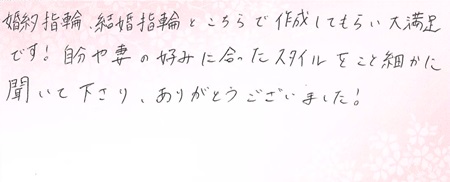 婚約指輪、結婚指輪とこちらで作成してもらい大満足
です!自分や妻の好みに合ったスタイルをこと細かに
聞いて下さり、ありがとうございました!